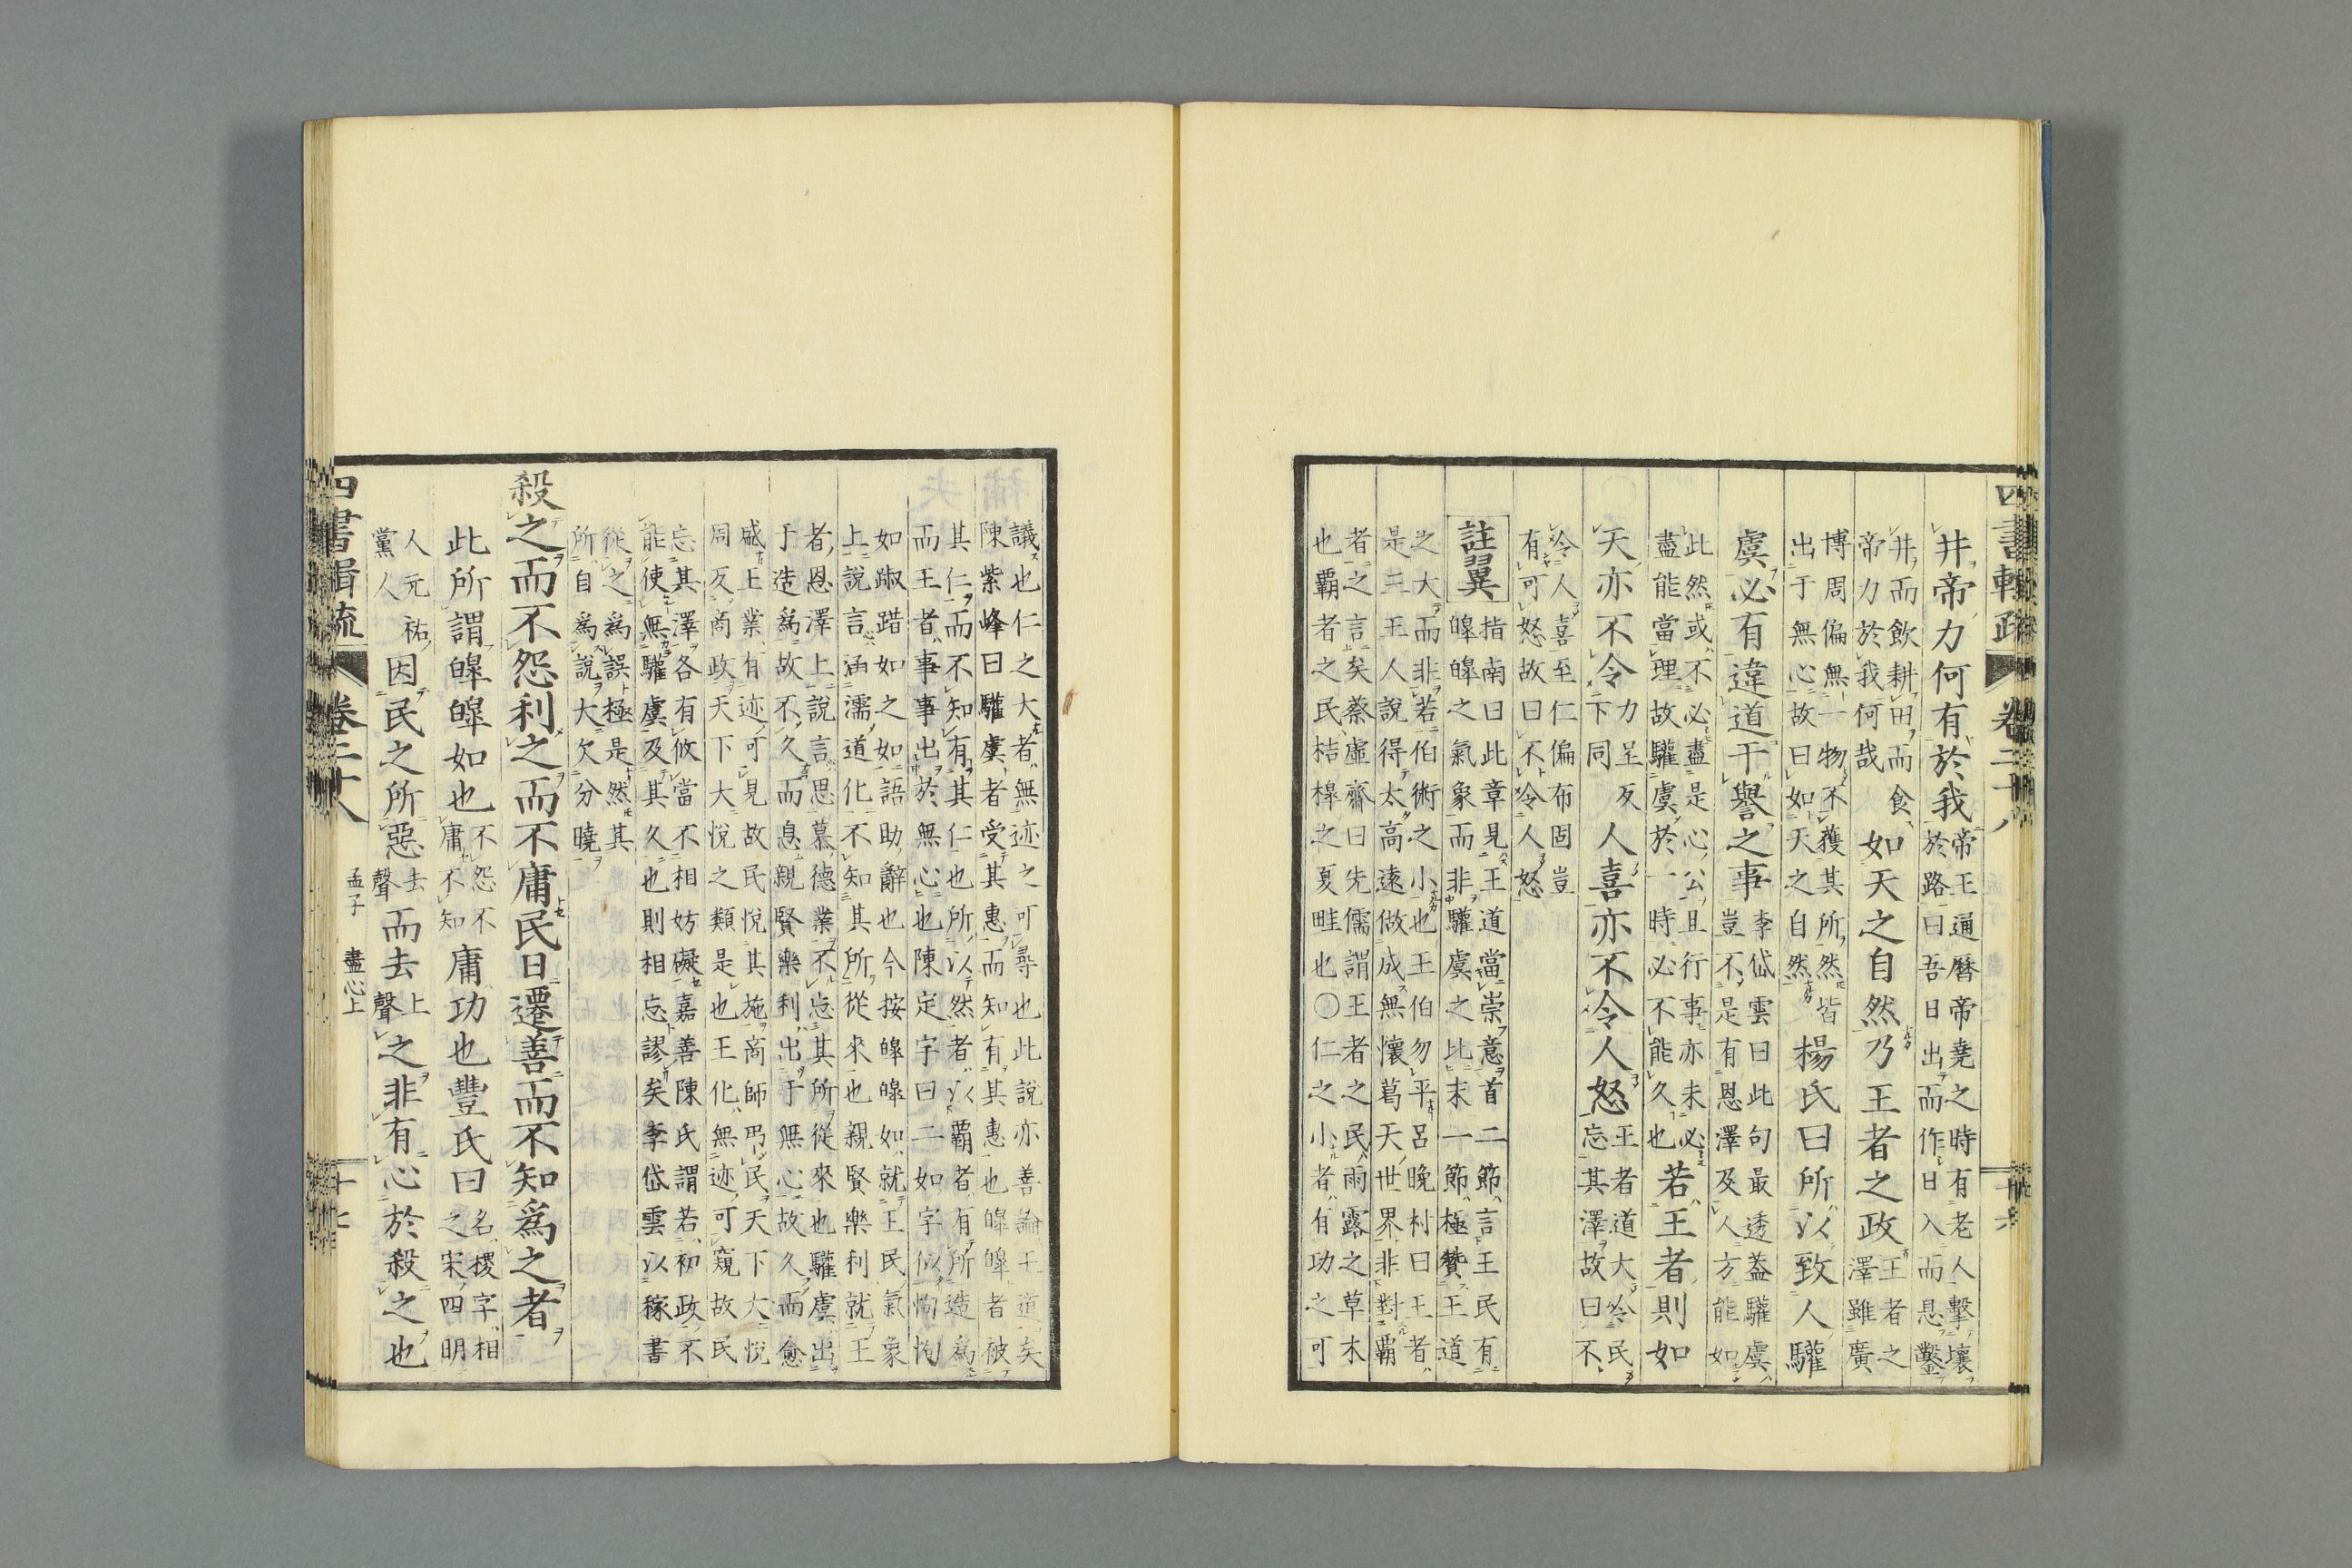 四書輯疏 卷二十八 十六
井帝力何有於我帝王通曆帝堯之時有老人擊壤
於路曰吾日出而作日入而息鑿
井而飲耕田而食
帝力於我何哉如天之自然乃王者之政王者之
澤雖廣
博周徧無一物不獲其所然皆
出于無心故曰如天之自然楊氏曰所以致人驩
虞必有違道干譽之事李岱雲曰此句最透葢驩虞
豈不是有恩澤及人方能如
此然或不必盡是心公且行事亦未必
盡能當理故驩虞於一時必不能久也若王者則如
天亦不令力呈反
下同人喜亦不令人怒王者道大令民
忘其澤故曰不
令人喜至仁徧布固豈
有可怒故曰不令人怒
註翼指南曰此章見王道當崇意首二節言王民有
皥皥之氣象而非驩虞之比末一節極贊王道
之大而非若伯術之小也王伯勿平呂晚村曰王者
是三王人說得太高遠做成無懷葛天世界非對霸
者之言矣蔡虛齋曰先儒謂王者之民雨露之草木
也霸者之民桔槹之夏畦也〇仁之小者有功之可
議也仁之大者無迹之可尋也此說亦善論王道矣
陳紫峰曰驩虞者受其惠而知有其惠也皥皥者被
其仁而不知有其仁也所以然者以霸者有所造爲
而王者事事出於無心也陳定宇曰二如字似恂恂
如踧踖如之如語助辭也今按皥皥如就王民氣象
上說言涵濡道化不知其所從來也親賢樂利就王
者恩澤上說言思慕德業不忘其所從來也驩虞出
于造爲故不久而息親賢樂利出于無心故久而愈
盛上業有迹可見故民悅其施商師弔民天下大悅
周反商政天下大悅之類是也王化無迹可窺故民
忘其澤各有攸當不相妨礙嘉善陳氏謂若初政不
能使無驩虞及其久也則相忘謬矣李岱雲以稼書
從之爲誤極是然其
所自爲說大欠分曉
殺之而不怨利之而不庸民日遷善而不知爲之者
此所謂皥皥如也不怨不
庸不知庸功也豐氏曰名稷字相
之宋四明
人元祐
黨人因民之所惡去
聲而去上
聲之非有心於殺之也
四書輯疏 卷二十八 孟子 盡心上 十七